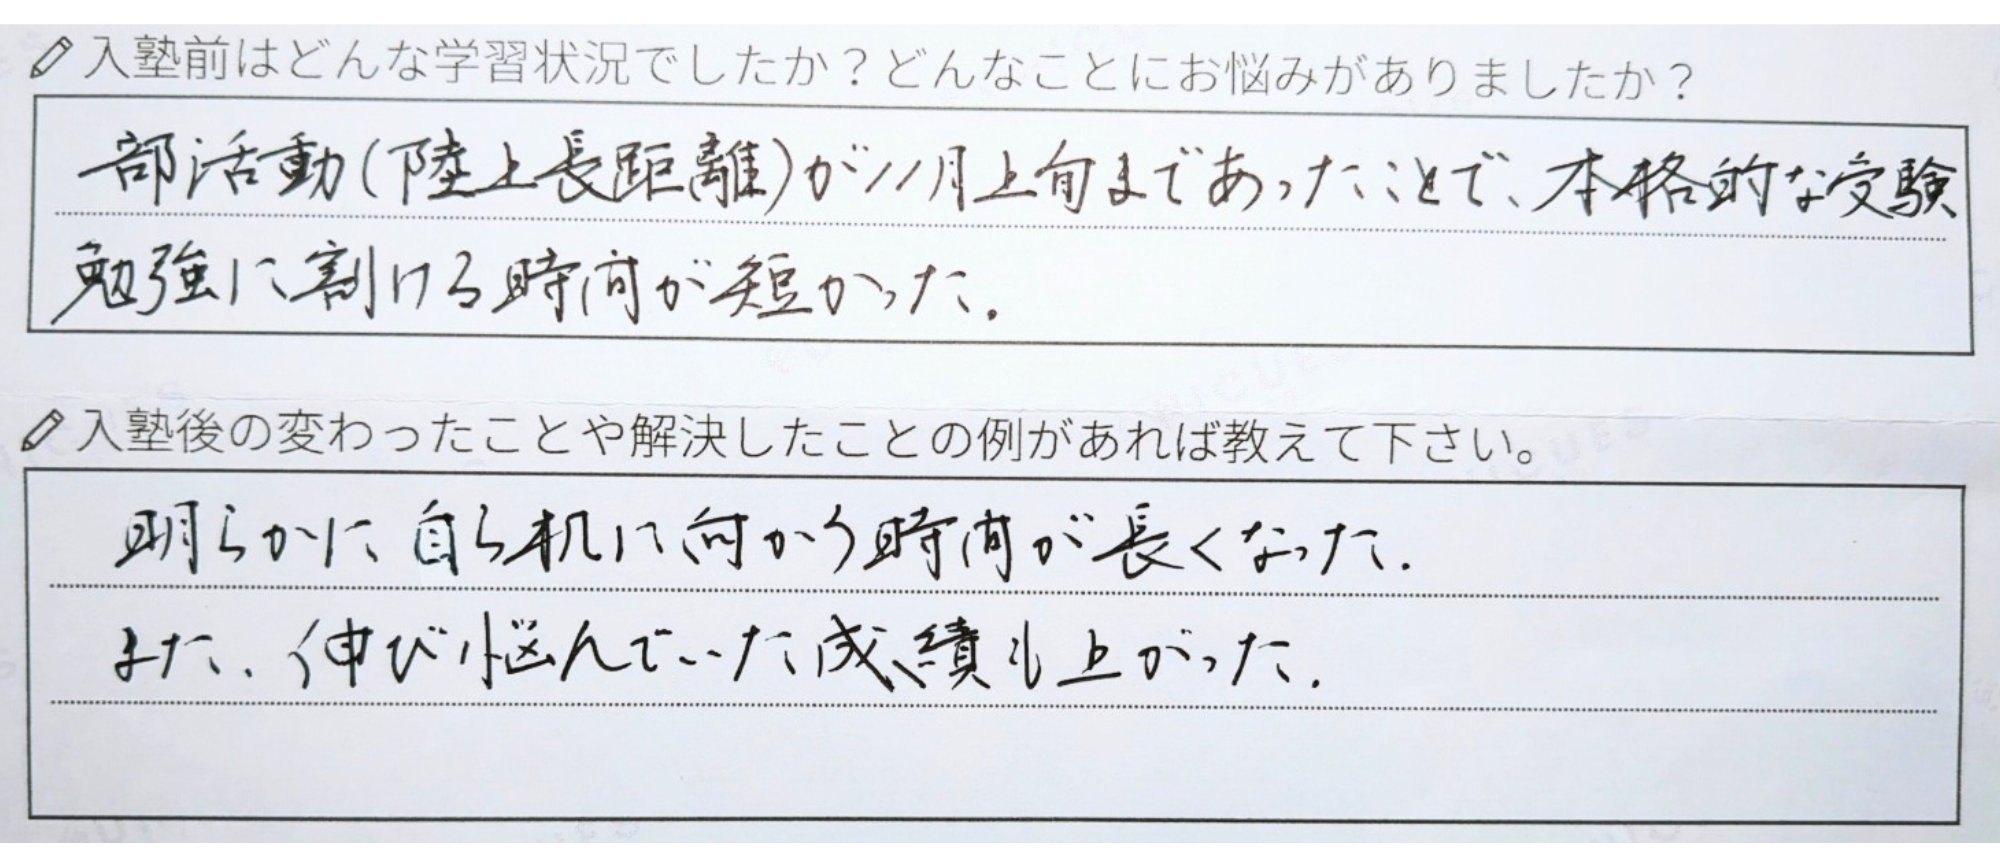 入塾前はどんな学習状況でしたか？どんなことにお悩みがありましたか？
部活動(陸上長距離)が11月上旬まであったことで、本格的な受験
勉強に割ける時間が短かった.
入塾後の変わったことや解決したことの例があれば教えて下さい。
明らかに自ら机に向かう時間が長くなった.
また、伸び悩んでいた成績も上がった.